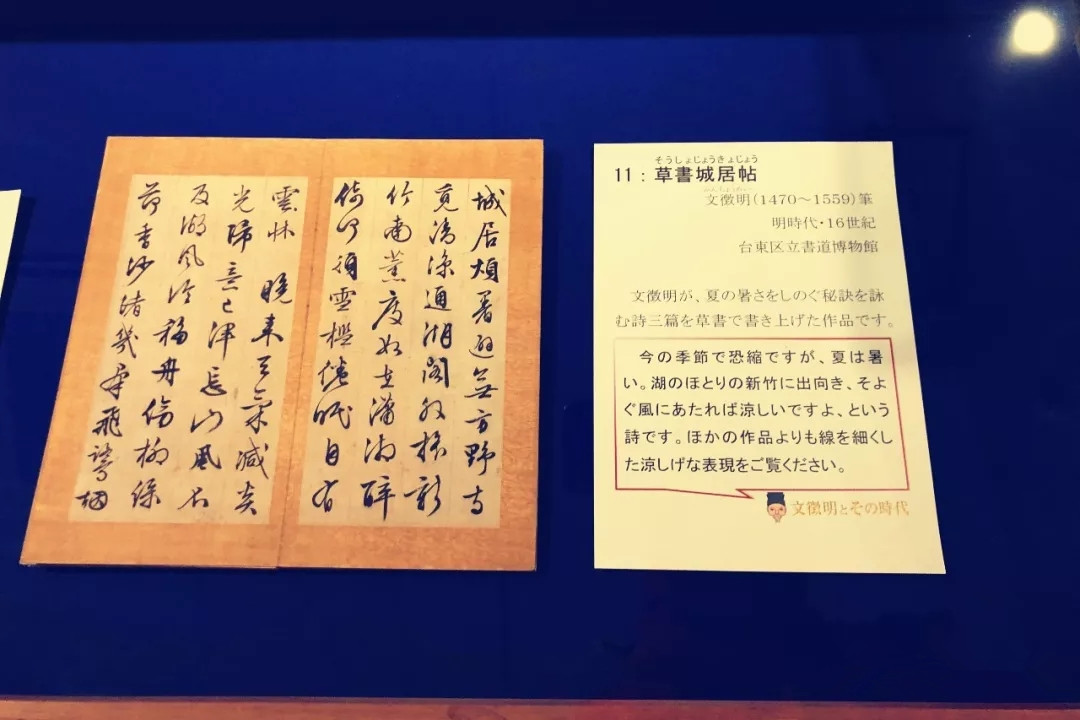 城居煩暑避無方野寺
覓清涼通湖閣外移新
竹南薰度如在瀟湘醉
倚何須雪檻倦眠自有
雲林 晚來天氣減炎
光歸意已忘山風不
及湖風冷移舟傍柳綠
荷香幾飛鷺烟
そうしょじょうきょじょう
11：草書城居帖
ぶんちょうめい
文徴明（1470～1559）筆
明時代・16世紀
台東区立書道博物館
文徴明が、夏の暑さをしのぐ秘訣を詠
む詩三篇を草書で書き上げた作品です。
今の季節で恐縮ですが、夏は暑
い。湖のほとりの新竹に出向き、そよ
ぐ風にあたれば涼しいですよ、という
詩です。ほかの作品よりも線を細くし
た涼しげな表現をご覧ください。
文徴明とその時代